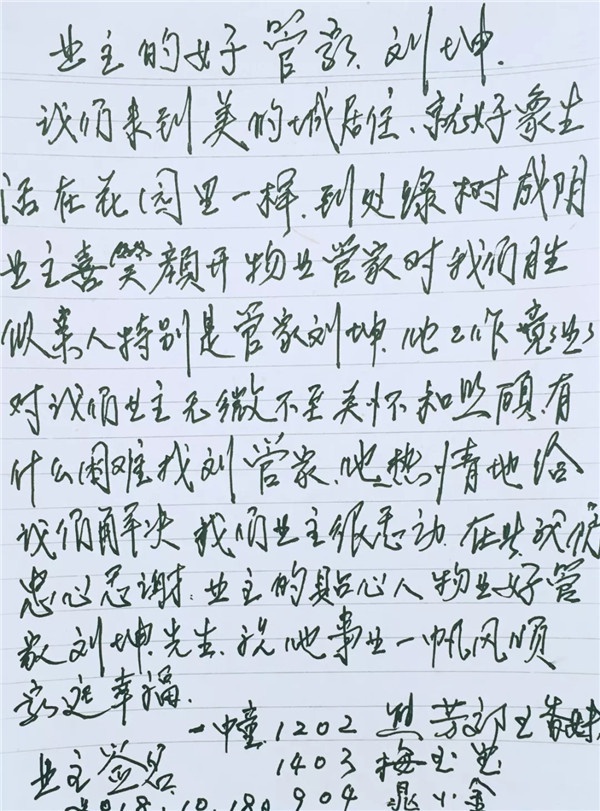 业主的好管家刘坤.
我们来到美的城居住、就好象生
活在花园里一样.到处绿树成阴
业主喜笑颜开物业管家对我们胜
似亲人特别是管家刘坤.他工作兢兢业业
对我们业主无微不至关怀和照顾.有
什么困难找刘管家.他热情地给
我们解决 我们业主很感动.在此我们
忠心感谢.业主的贴心人物业好管
家刘坤.先生.祝他事业一帆风顺
家庭幸福.
一中童.1202 熊芳
1403 梅
业主签名
2018.10.18. 904 小金